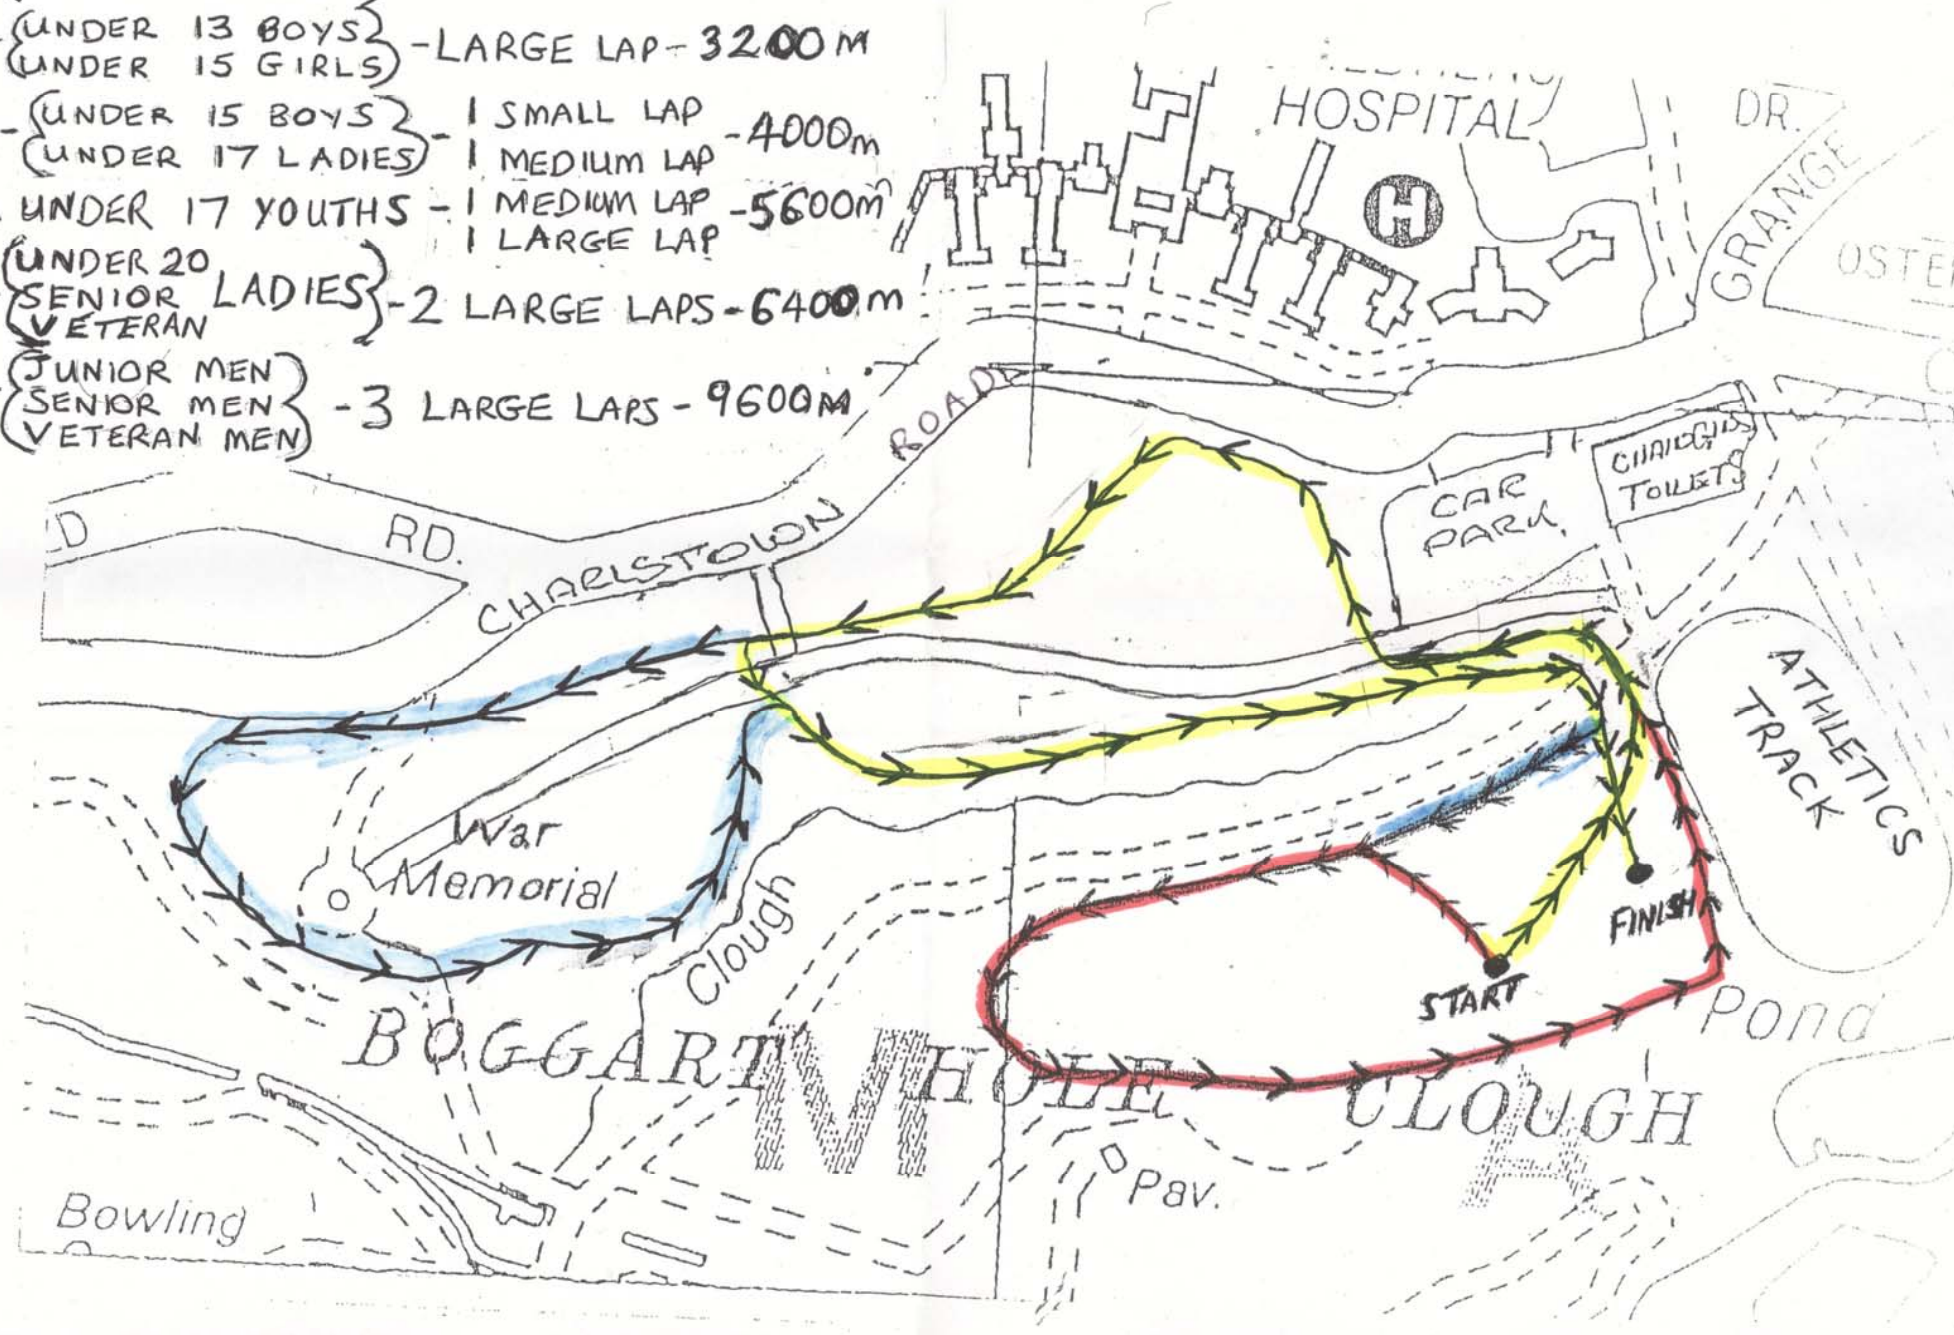 UNDER 13 BOYS
UNDER 15 GIRLS
- LARGE LAP - 3200M
UNDER 15 BOYS
UNDER 17 LADIES
- 1 SMALL LAP
1 MEDIUM LAP
- 4000m
UNDER 17 YOUTHS - 1 MEDIUM LAP
1 LARGE LAP
- 5600m
UNDER 20
SENIOR
VETERAN
LADIES
- 2 LARGE LAPS - 6400m
JUNIOR MEN
SENIOR MEN
VETERAN MEN
- 3 LARGE LAPS - 9600M
HOSPITAL
H
DR.
GRANGE
ROAD
CHARLSTOWN
RD.
D
CAR
PARK
TOILETS
ATHLETICS
TRACK
War
Memorial
Clough
FINISH
START
Pond
BOGGART HOLE CLOUGH
M
A
Pav.
Bowling